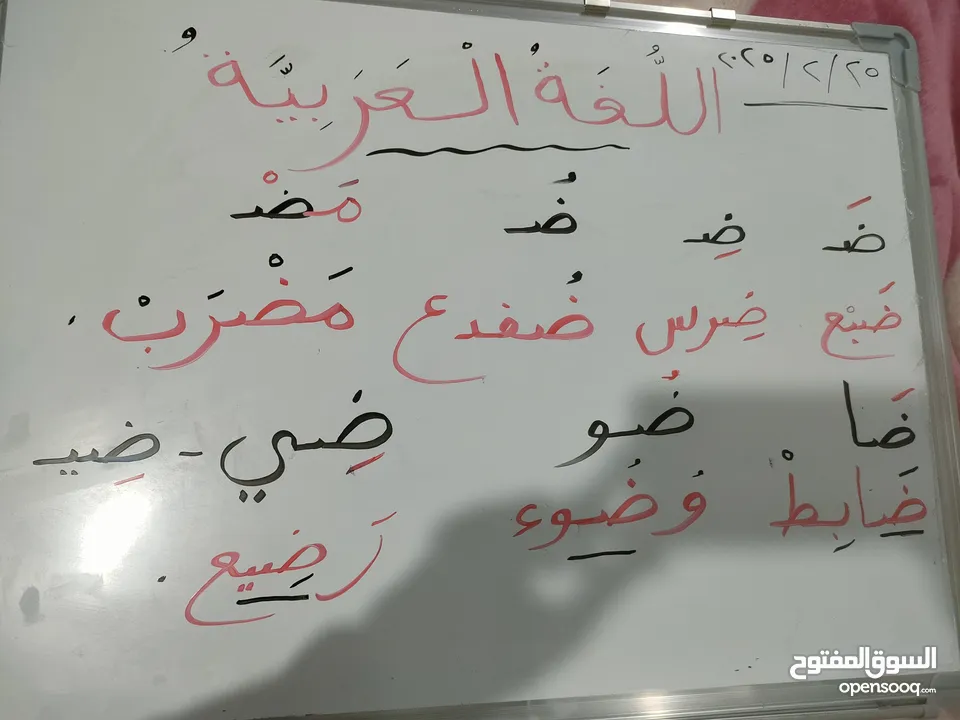 ٢٠٢٥/٢/٢٥
اللُّغَةُ الْعَرَبِيَّةُ
ضَ ضِ ضُ مَضْ
ضَبْع ضِرس ضُفدع مَضْرَبْ .
ضَا ضُو ضِي - ضِيـ
ضَابِطْ وُضُوء
رَضِيع .
السوق المفتوح
opensooq.com